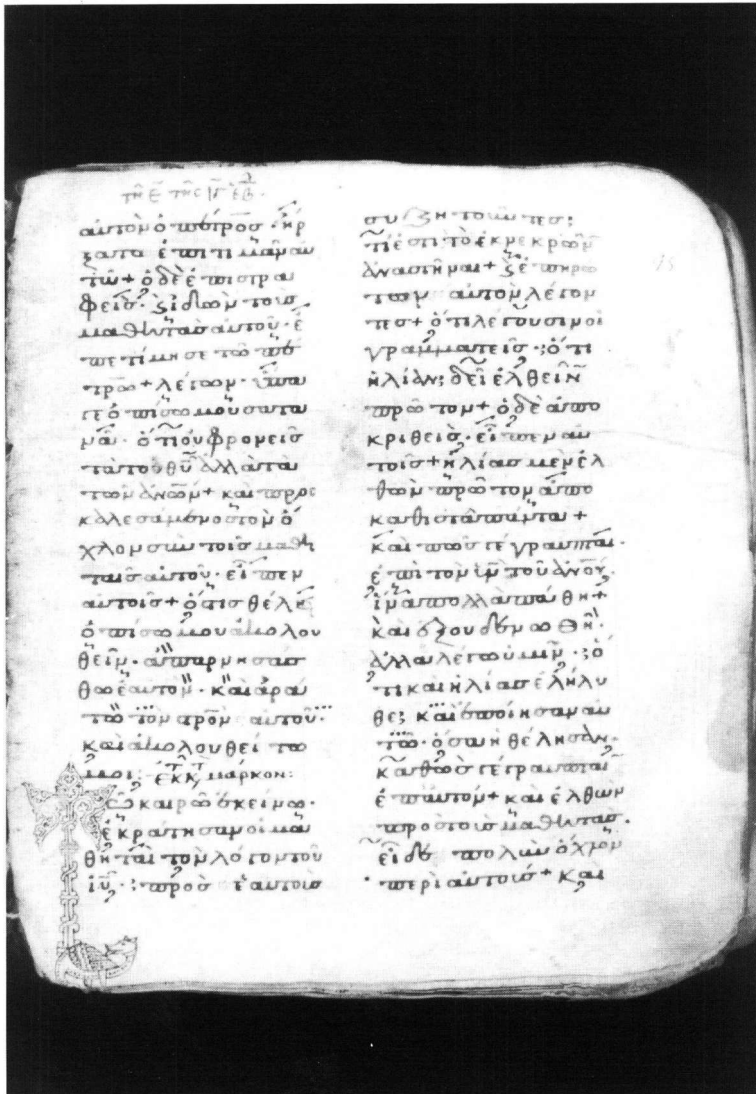 τῇ ε̄ τῆς ῑγ ἑβ.
αὐτὸν ὁ πέτρος· ἤρ
ξατο ἐπιτιμᾶν αὐ
τῶ + ὁ δὲ ἐπιστρα
φεὶς· ϗ ἰδὼν τοὺς
μαθητὰς αὐτοῦ· ἐ
πετίμησε τῶ πέ
τρω + λέγων· ὕπα
γε ὀπίσω μου σατα
νᾶ· ὅτι οὐ φρονεῖς
τὰ τοῦ θῦ ἀλλὰ τὰ
τῶν ἀνῶν + καὶ προς
καλεσάμενος τὸν ὄ
χλον σὺν τοῖς μαθη
ταῖς αὐτοῦ· εἶπεν
αὐτοῖς + ὅστις θέλει
ὀπίσω μου ἀκολου
θεῖν· ἀπαρνησάσ
θω ἑαυτὸν· καὶ ἀρά
τω τὸν σ̅ρον αὐτοῦ·
καὶ ἀκολουθείτω
μοι: ἐκ τ κτ μάρκον:
Τῶ καιρῶ ἐκείνω·
ἐκράτησαν οἱ μα
θηταὶ τὸν λόγον τοῦ
ἰῦ· πρὸς ἑαυτοὺς
συζητοῦντες;
τί ἐστι τὸ ἐκ νεκρῶν
ἀναστῆναι + ϗ ἐπηρώ
των αὐτὸν λέγον
τες + ὅτι λέγουσιν οἱ
γραμματεῖς· ὅτι
ἠλίαν; δεῖ ἐλθεῖν
πρῶτον + ὁ δὲ ἀπο
κριθεὶς· εἶπεν αὐ
τοῖς + ἠλίας μὲν ἐλ
θὼν πρῶτον ἀπο
καθιστᾶ πάντα +
καὶ πῶς γέγραπται·
ἐπὶ τὸν ῡν τοῦ ἀνοῦ·
ἵνα πολλὰ πάθη +
καὶ ἐξουδενωθῆ·
ἀλλὰ λέγω ὑμῖν· ὅ
τι καὶ ἠλίας ἐλήλυ
θε; καὶ ἐποίησαν αὐ
τῶ· ὅσα ἠθέλησαν·
καθὼς γέγραπται
ἐπ' αὐτόν + καὶ ἐλθὼν
πρὸς τοὺς μαθητὰς·
εἶδε πολὺν ὄχλον
περὶ αὐτοὺς + καὶ